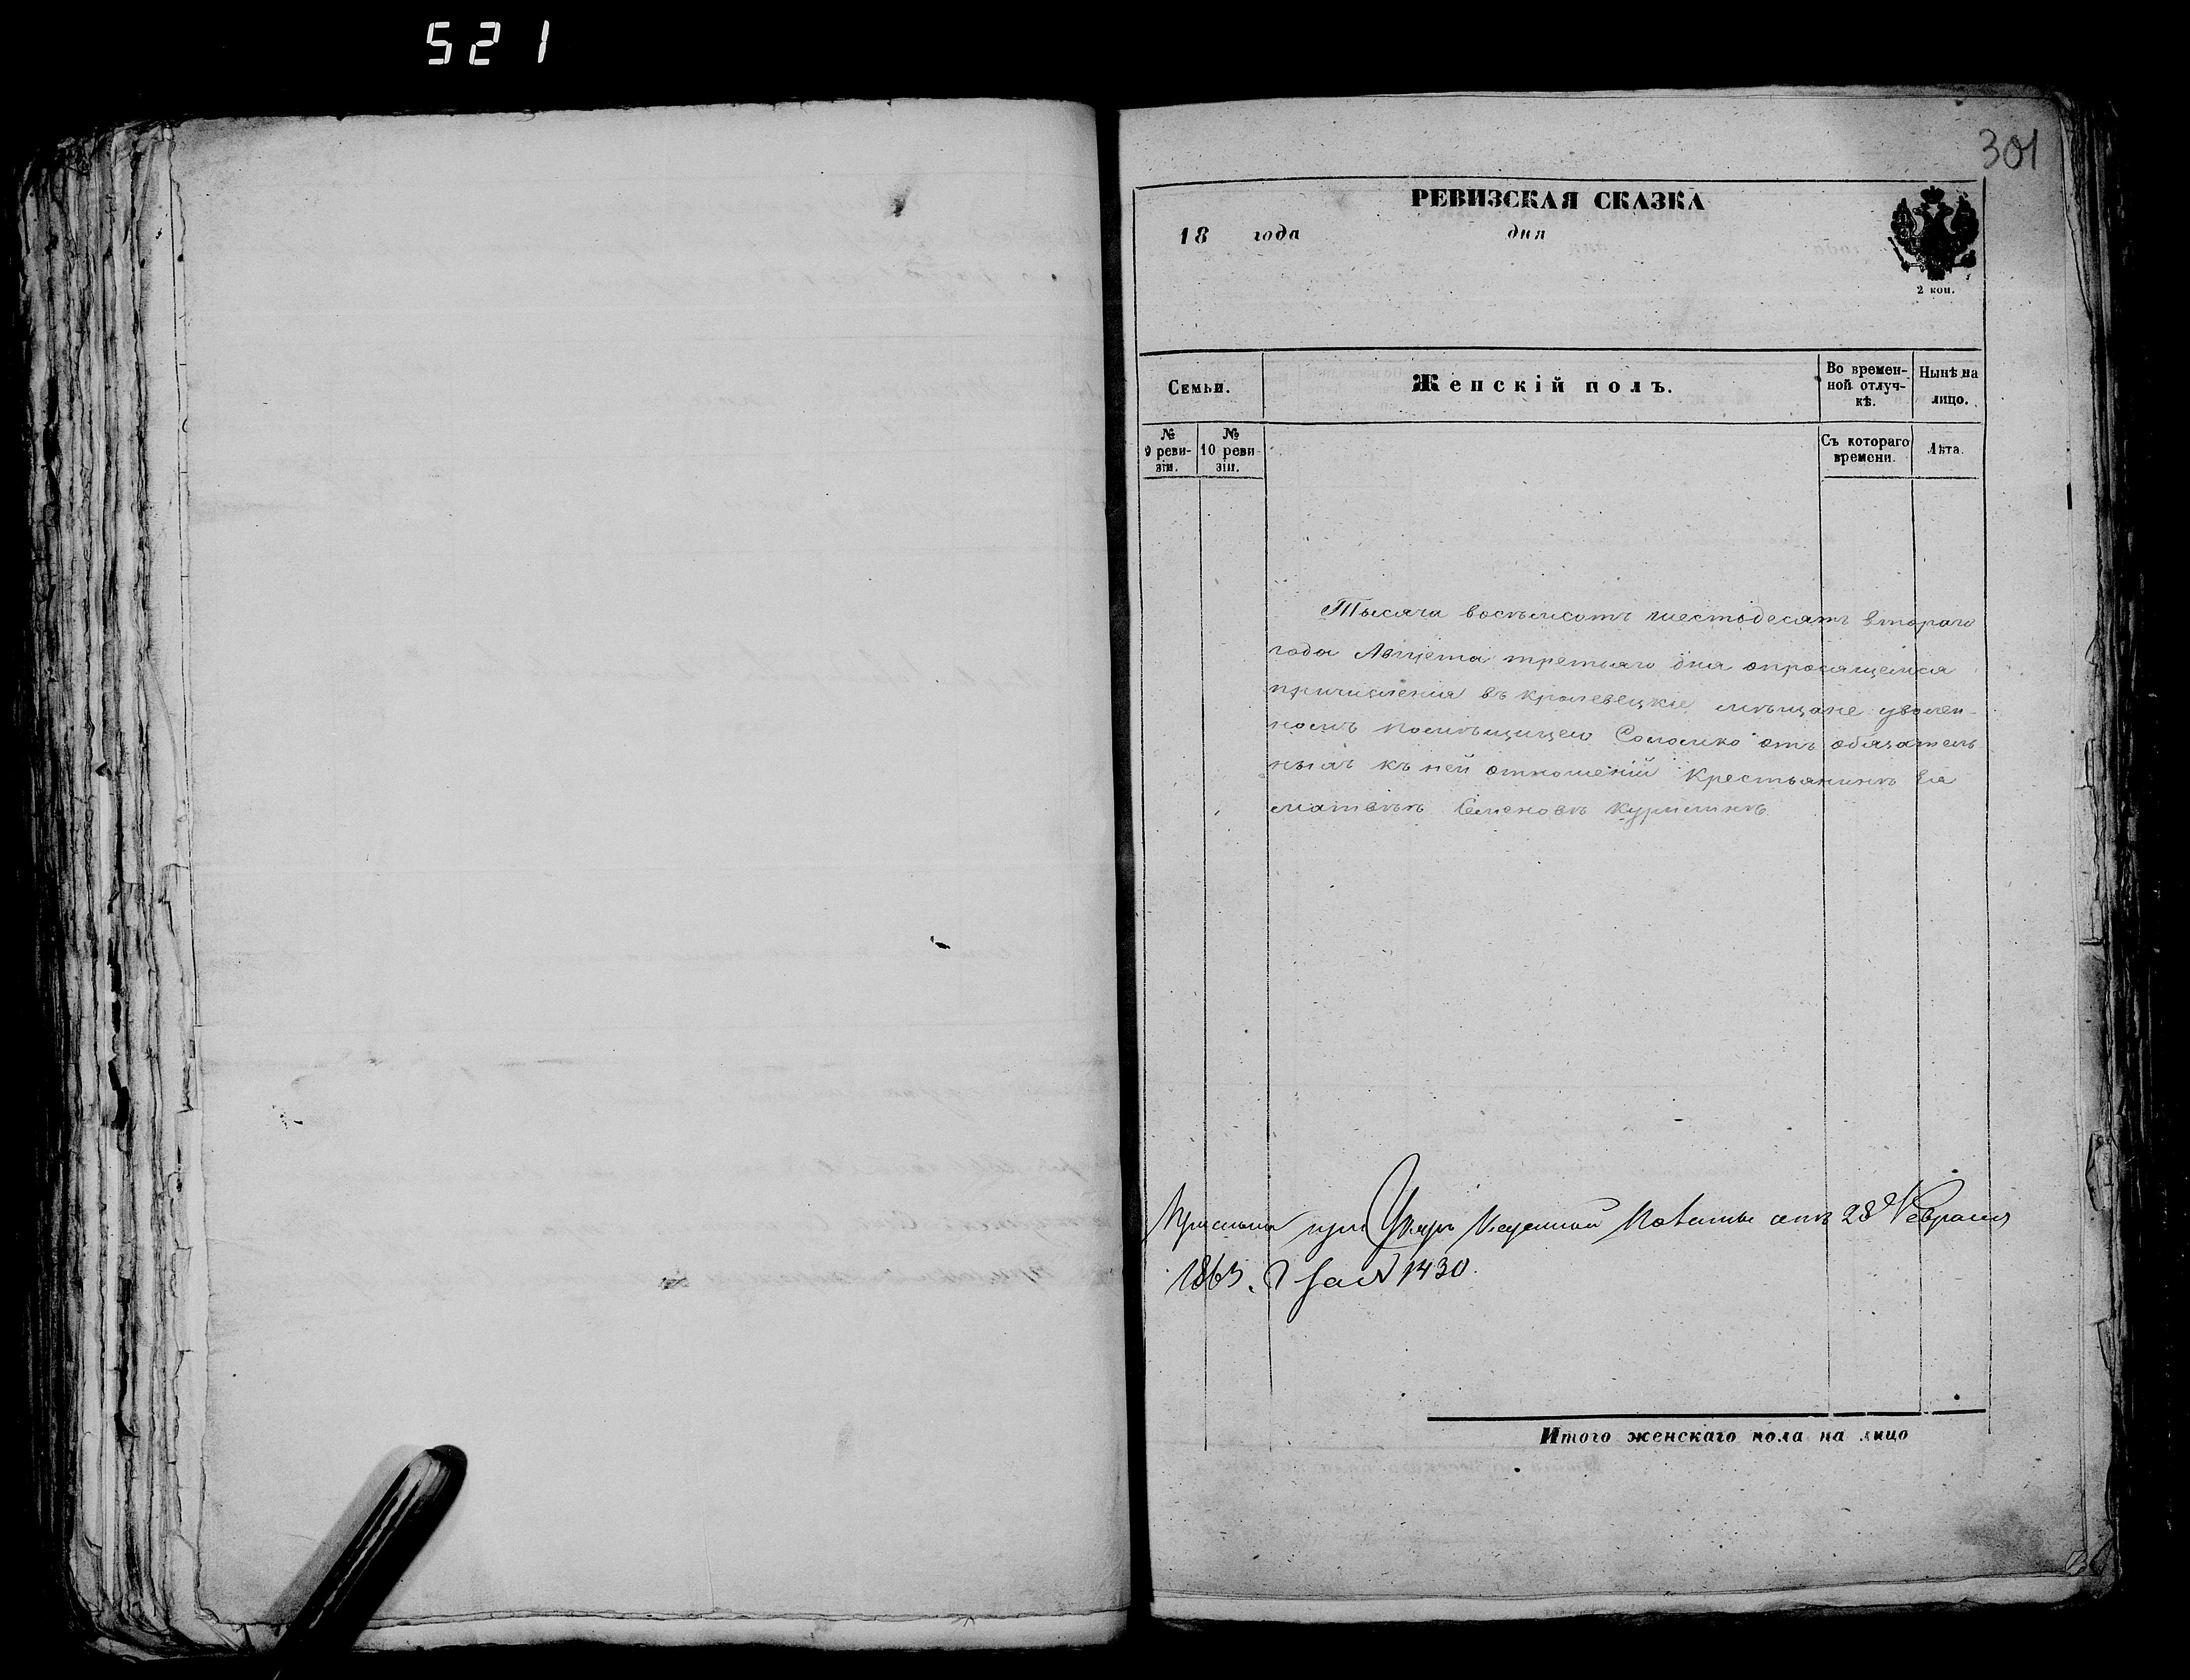 521
301
РЕВИЗСКАЯ СКАЗКА
18 года дня
2 коп.
Семьи.
Женскій полъ.
Во времен-
ной отлуч-
кѣ.
Нынѣ на
лицо.
№
9 реви-
зіи.
№
10 реви
зіи.
Съ котораго
времени.
Лѣта.
Тысяча восемьсотъ шестьдесятъ втораго
года Августа третьяго дня опросящемся
причисленія въ Кролевецкіе мѣщане уволен-
номъ помѣщицею Соломко отъ обязатель
ныхъ къ ней отношеній Крестьянинѣ Ея
Матвѣѣ Семеновѣ Курилинѣ
при Указѣ Казенной Палаты отъ 28 Февраля
1863. за № 1430.
Итого женскаго пола на лицо